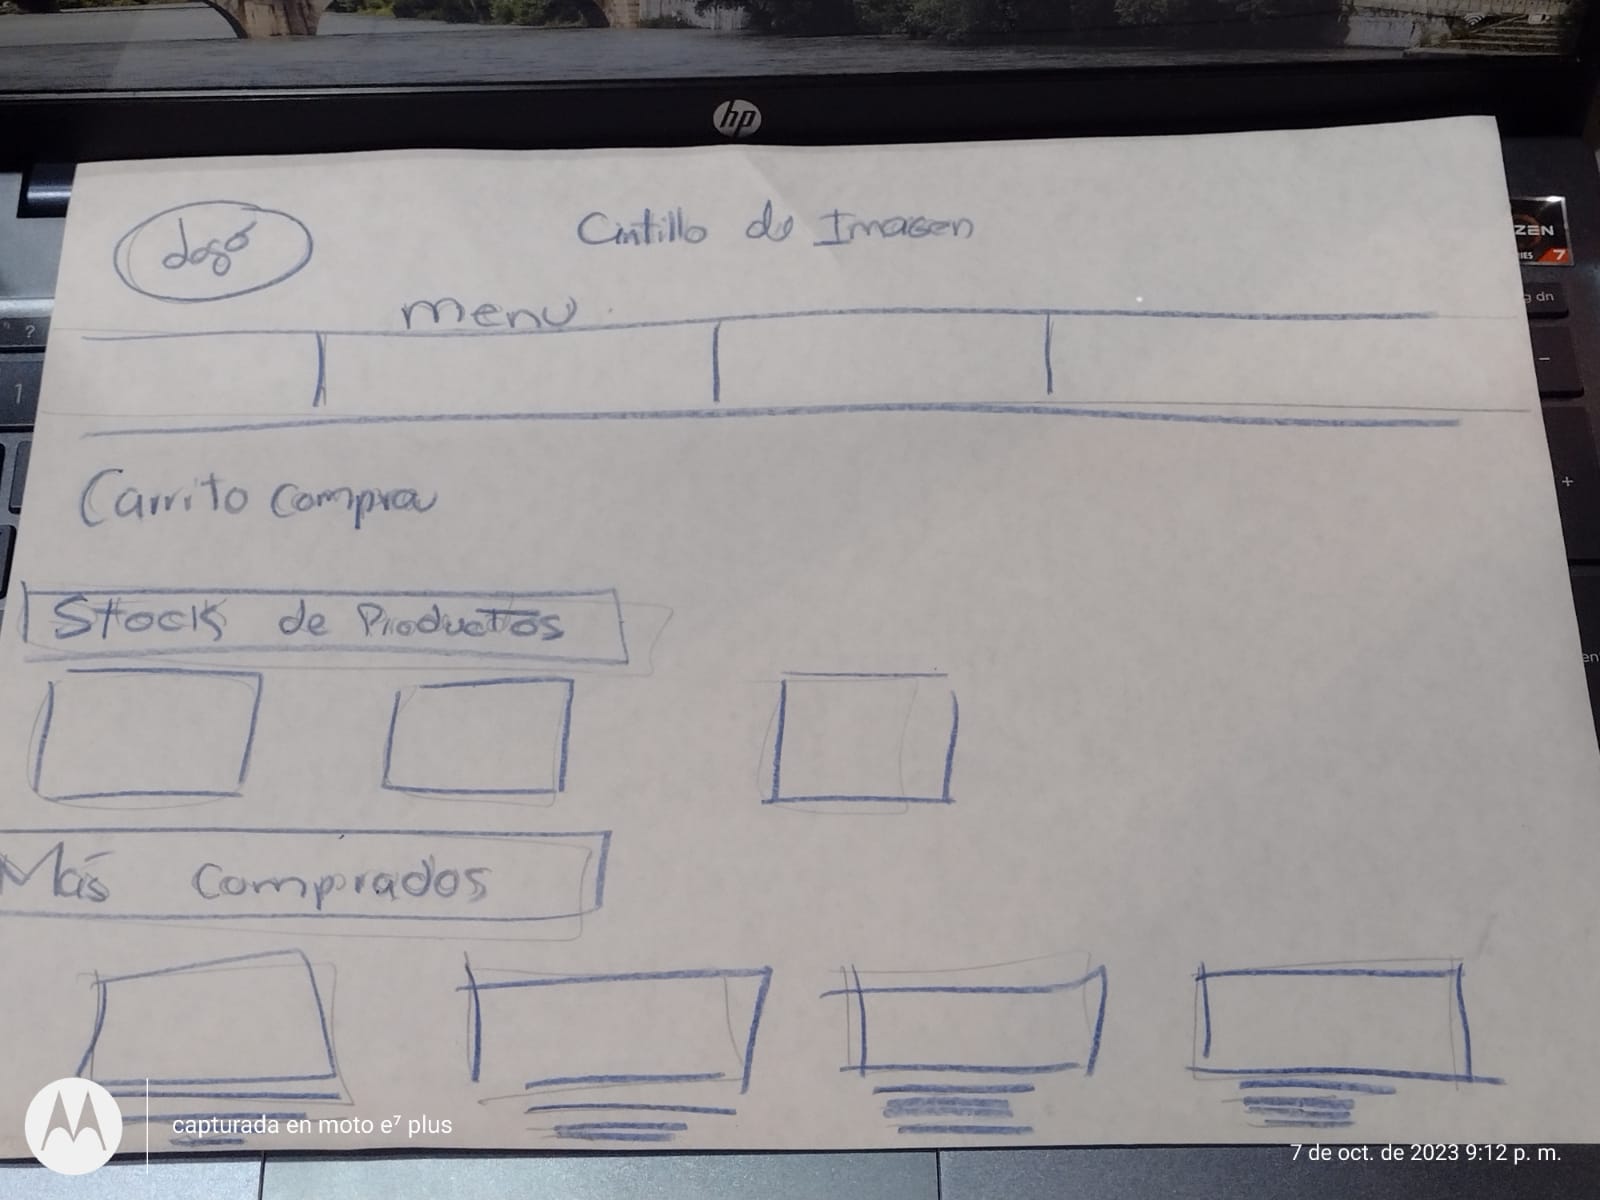 hp
Logo
Cintillo de Imagen
menu
Carrito compra
Stock de Productos
Más Comprados
ZEN
7
g dn
?
1
-
+
en
capturada en moto e⁷ plus
7 de oct. de 2023 9:12 p. m.